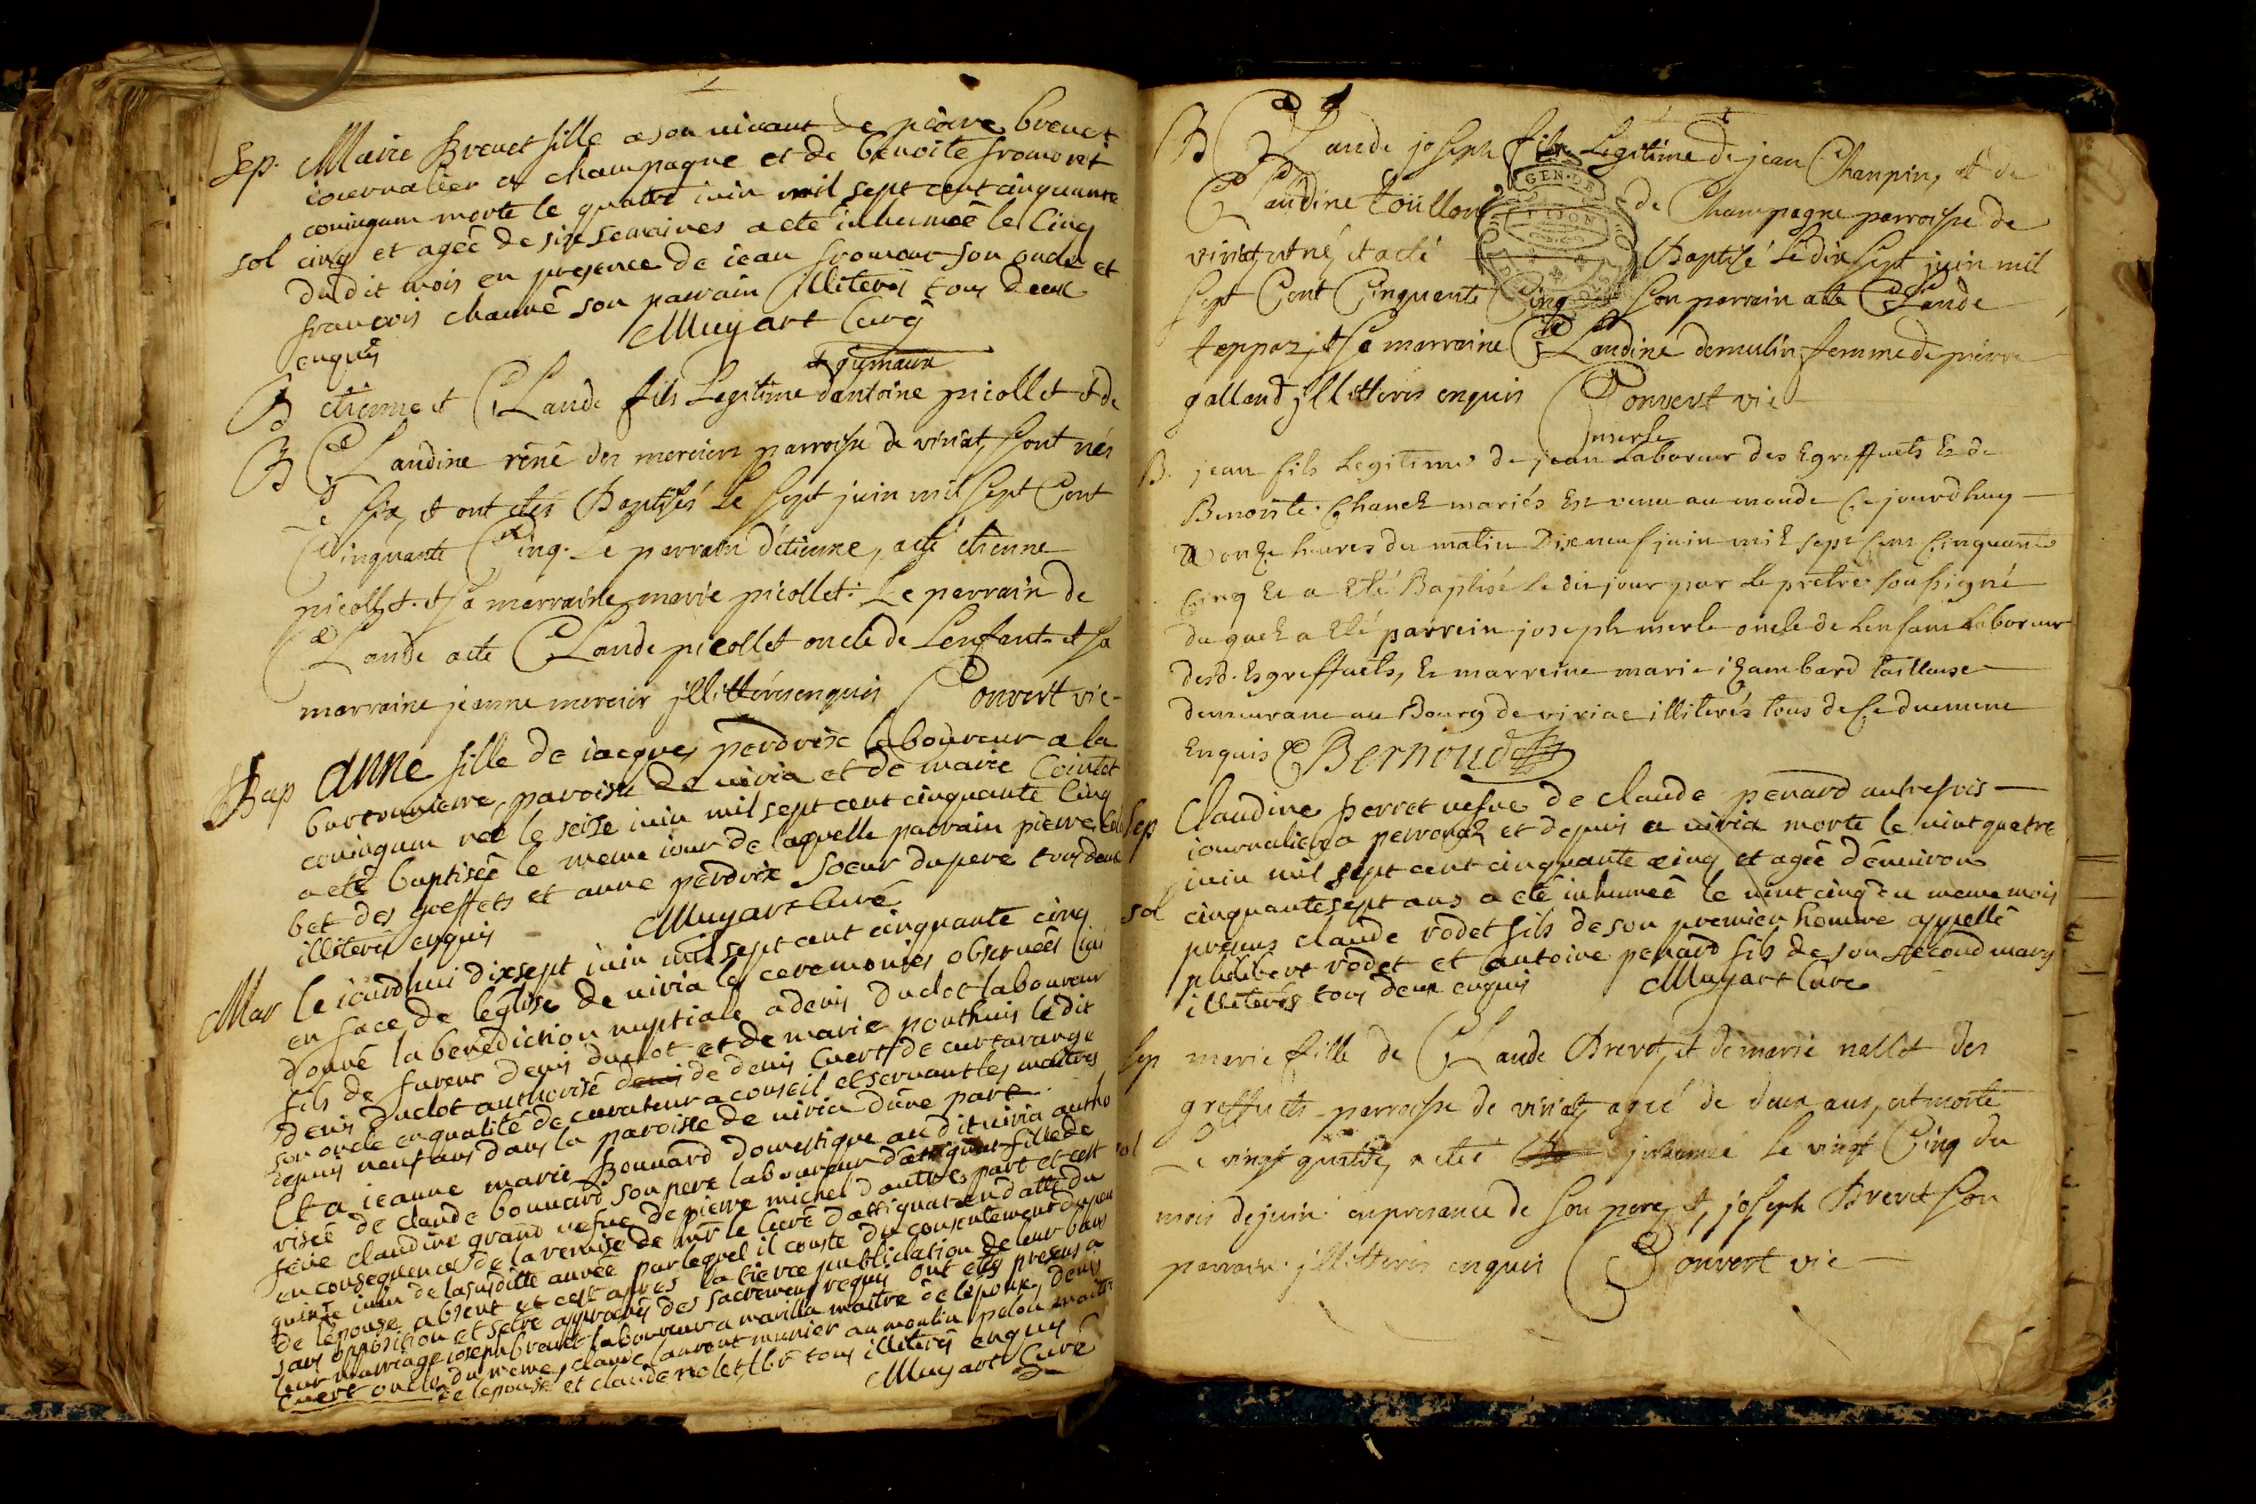 Sep. Marie Brevet fille a son vivant de pierre brevet
iournalier a champagne et de benoite fromont
coniugum morte le quatre iuin mil sept cent cinquante
sol cinq et agée de six semaines a eté inhumée le cinq
du dit mois en presence de iean fromont son oncle et
francois chanué son parrain illiteres tous deux
enquis Muyart Curé
& gumaux
B etienne et Claude fils Legitime dantoine picollet et de
B Claudine réné des merciers parroisse de viriat, sont nés
le six, et ont etes Baptisés le sept juin mil sept Cent
Cinquante Cinq. Le parrain d'etienne, a eté etienne
picollet. et sa marraine marie picollet. Le parrain de
Claude a ete Claude picollet oncle de Lenfant et sa
marraine jeanne mercier jllitterés enquis Convert vic
Bap Anne fille de iacques perdrix laboureur a la
bartonniere, paroisse de viria et de marie Cointet
coniugum née le seize iuin mil sept cent cinquante cinq
a eté baptisée le meme iour de laquelle parrain pierre
bet des greffets et anne perdrix soeur du pere tous deux
illiteres enquis Muyart Curé
Mar le iourdhui dixsept iuin mil sept cent cinquante cinq
en face de léglise de viria les ceremonies observées iai
donné la benediction nuptiale a denis duclot laboureur
fils de furent denis duclot et de marie ponthuis le dit
denis duclot authorisé de denis Cuert de curtarange
son oncle en qualité de curateur a conseil et servant les maitres
depuis neuf ans dans la paroisse de viria dune part
Et a ieanne marie Bonnard domestique au dit viria autho
risée de claude bonnard son pere laboureur d'attignat fille de
feue claudine grand vefve de pierre michel d'autre part et cest
en consequence de la remise de mr le curé d'attignat en datte du
quinze iuin de la susditte année par lequel il conste du consentement du pere
de lépouse absent et cest apres la tierce publication de leur bans
sans opposition et setre approchés des sacremens requis ont etés presens a
leur marriage ioseph brevet laboureur a marilla maitre de lépoux, denis
Cuert oncle du meme, claude laurent munier au moulin palou maitre
de lepouse et claude nolet, lbr tous illiteres enquis
Muyart Curé
B Claude joseph fils Legitime de jean Chanpin, et de
Claudine toüillon de Champagne parroisse de
viriat, est né, et a eté Baptisé le dix sept juin mil
sept Cent Cinquante Cinq son parrain a ete Claude
teppaz, et sa marraine Claudine demulin femme de pierre
galland jllitterés enquis Convert vic
merle
B. jean fils Legitime de jean Laboreur des Egreffaets & de
Benoiste Chanel mariés Est venu au monde Ce jourdhuy
a onze heures du matin Dix neuf juin mil sept Cent Cinquante
Cinq & a Eté Baptisé Le dit jour par Le pretre soussigné
du quel a Eté parrein joseph merle oncle de Lenfant Laboreur
desd. Egreffaets, & marreine marie izambard tailleuse
demeurant au Bourg de viriac illiterés tous de Ce duement
Enquis Bernoud
Sep Claudine perret vefve de claude penard autrefois
iournalier a perrouaz et depuis a viria morte le vint quatre
iuin mil sept cent cinquante cinq et agée d'environ
sol cinquante sept ans a eté inhumée le vint cinq du meme mois
presens claude rodet fils de son premier homme appellé
philibert rodet et antoine penard fils de son second mary
illiterés tous deux enquis Muyart Curé
Sep marie fille de Claude Brevet, et de marie nallet des
greffaets parroisse de viriat, ageé de deux ans, est morte
sol Le vingt quatre, a eteé jnhumée Le vingt Cinq du
mois de juin en presance de son pere, et, joseph Brevet son
parrain jllitterés enquis Convert vic